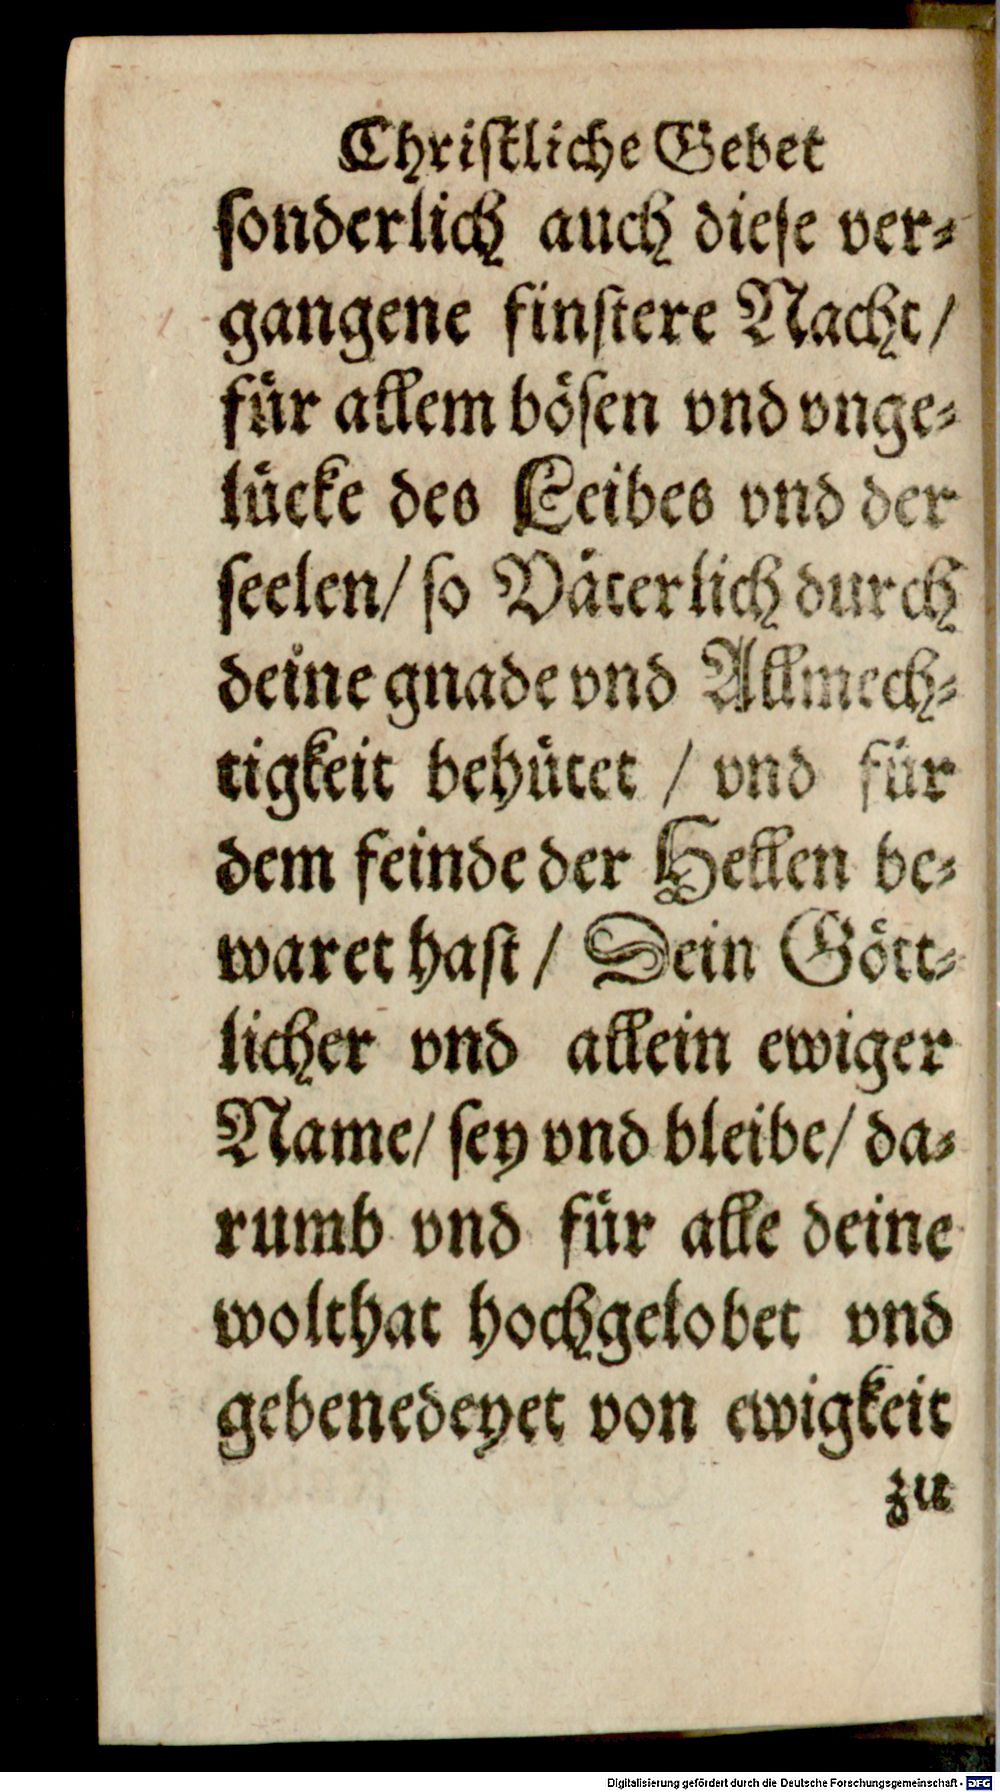 Christliche Gebet
sonderlich auch diese ver⸗
gangene finstere Nacht/
für allem bösen vnd vnge⸗
lücke des Leibes vnd der
seelen/ so Väterlich durch
deine gnade vnd Allmech⸗
tigkeit behütet / vnd für
dem feinde der Hellen be⸗
waret hast / Dein Gött⸗
licher vnd allein ewiger
Name/ sey vnd bleibe/ da⸗
rumb vnd für alle deine
wolthat hochgelobet vnd
gebenedeyet von ewigkeit
zu
Digitalisierung gefördert durch die Deutsche Forschungsgemeinschaft - DFG